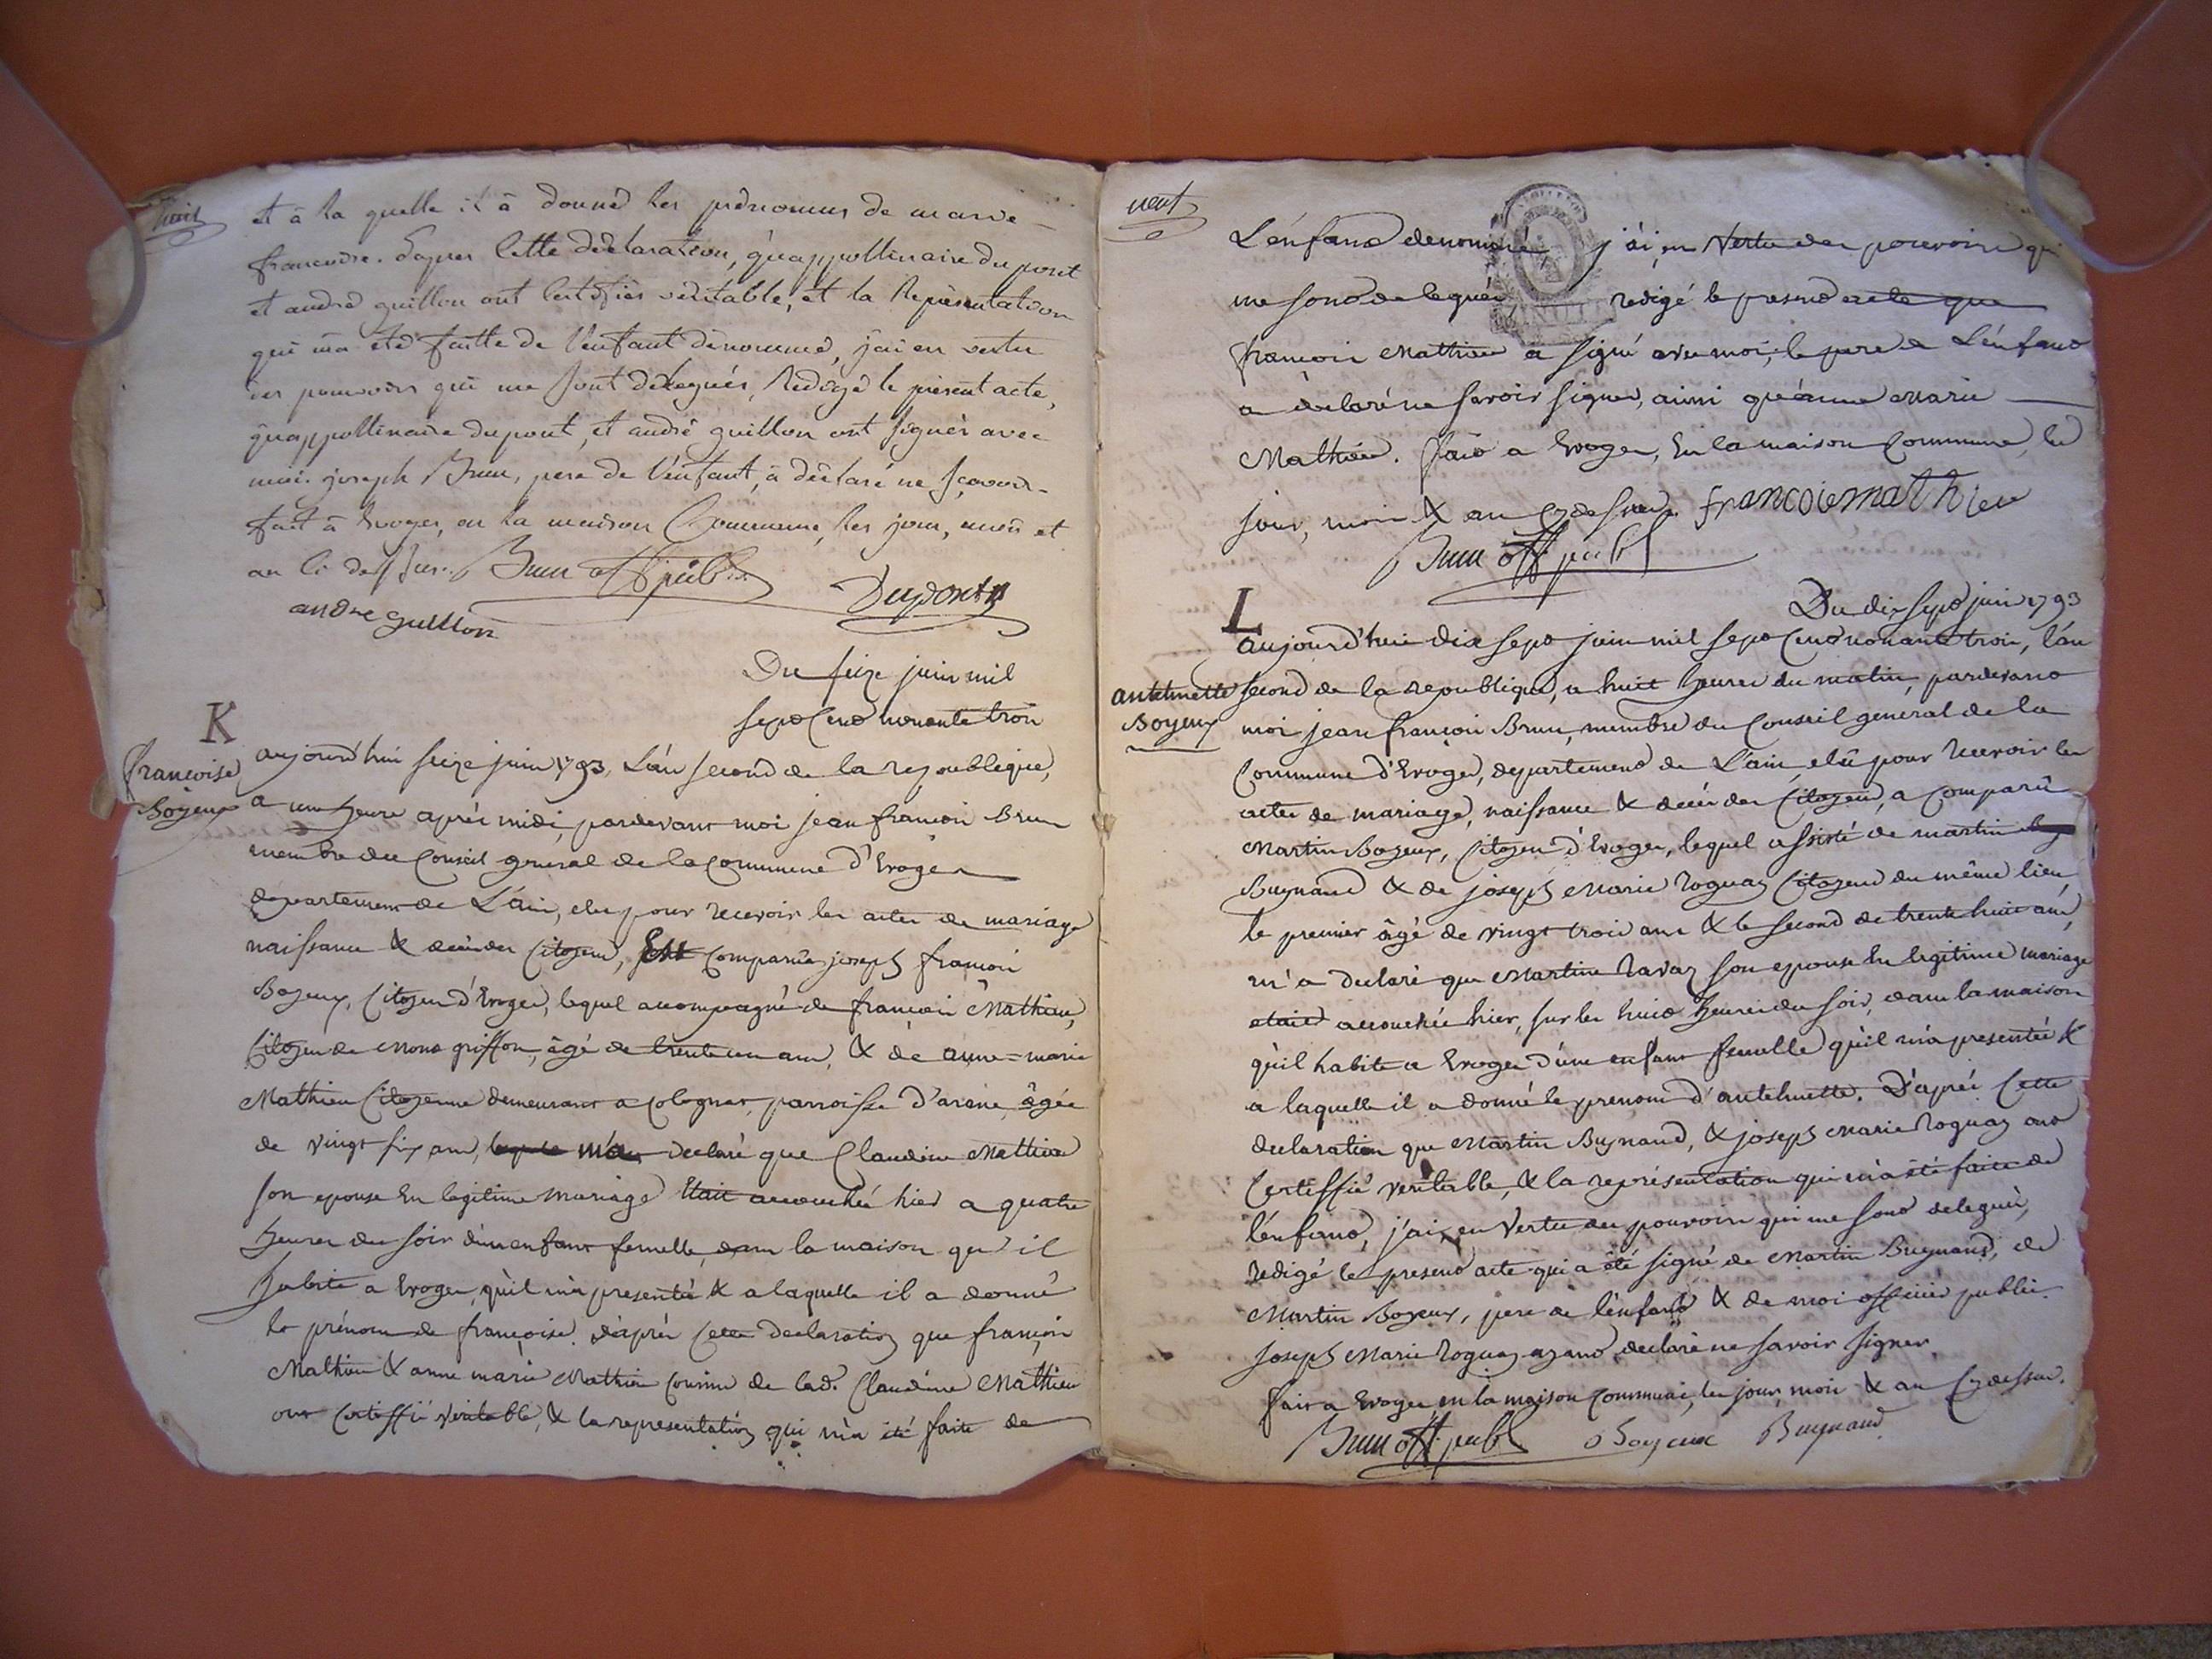 huit
et à la quelle il à donné les prénomms de marie
francoise. D'apres cette declaration, qu'appollinaire dupont
et andré guillon ont certifiés véritable, et la Représentation
qui m'a eté faitte de l'enfant dénommé, j'ai en vertu
des pouvoirs qui me sont délegués, Redigé le présent acte,
qu'appollinaire dupont, et andré guillon ont signés avec
moi. joseph Brun, pere de l'enfant, à déclaré ne sçavoir.
fait à Evoges, en la maison Commune, les jour, mois et
an ci dessus. Brun off publ.
Dupont
andre guillon
Du seize juin mil
sept Cent nonante trois
K
francoise
Boyeux
aujourd'hui seize juin 1793, L'an second de la republique,
a une heure après midi, pardevant moi jean francois Brun
membre du Conseil general de la Commune d'Evoges
departement de L'ain, elu pour recevoir les actes de mariage
naissance & decès des Citoyens, Est Comparu joseph francois
Boyeux, Citoyen d'Evoges, lequel accompagné de francois Mathieu,
Citoyen de mont griffon, âgé de trente un ans, & de anne=marie
Mathieu Citoyenne demeurant a Colognat, parroisse d'arane, âgée
de vingt six ans, m'a declaré que Claudine Mathieu
son epouse En legitime mariage Etait accouchée hier a quatre
heures du soir d'un enfant femelle, dans la maison qu'il
habite a Evoges, qu'il m'a presentée & a laquelle il a donné
le prénom de françoise. D'aprés Cette declaration que françois
Mathieu & anne marie Mathieu Cousins de lad. Claudine Mathieu
ont Certiffié veritable, & la representation qui m'a été faite de
neuf
L'enfant denommé j'ai, en Vertu des pouvoirs qui
me sont delegués redigé le present acte que
françois Mathieu a signé avec moi; le pere de L'énfant
a declaré ne savoir signer, ainsi qu'anne Marie
Mathieu. Fait a Evoges, En la maison Commune, les
jour, mois & an Cy dessus. francoismathieu
Brun off publ
Du dix sept juin 1793
L
antelmette
Boyeux
aujourd'hui dix sept juin mil sept Cent nonante trois, l'an
second de la republique, a huit heures du matin, pardevant
moi jean françois Brun, membre du Conseil general de la
Commune d'Evoges, departement de L'ain, elû pour recevoir les
actes de mariage, naissance & decès des Citoyens, a Comparû
Martin Boyeux, Citoyen d'Evoges, lequel assisté de martin
Buynand & de joseph Marie roguaz Citoyens du même lieu,
le premier âgé de vingt trois ans & le second de trente huit ans,
m'a declaré que Martine ravaz son epouse En legitime mariage
etait accouchée hier, sur les huit heures du soir, dans la maison
qu'il habite a Evoges d'une enfant femelle qu'il m'a presentée &
a laquelle il a donné le prenom d'antelmette. D'aprés Cette
declaration que Martin Buynand, & joseph Marie roguaz ont
Certiffié veritable, & la représentation qui m'a été faite de
l'énfant, j'ai, en Vertu des pouvoirs qui me sont delegués,
redigé le present acte qui a été signé de Martin Buynand, de
Martin Boyeux, pere de l'énfant & de moi officier public.
joseph Marie roguaz ayant declaré ne savoir signer
fait a Evoges, en la maison Commune, les jour, mois & an Cy dessus.
Brun off. publ Boyeux Buynand